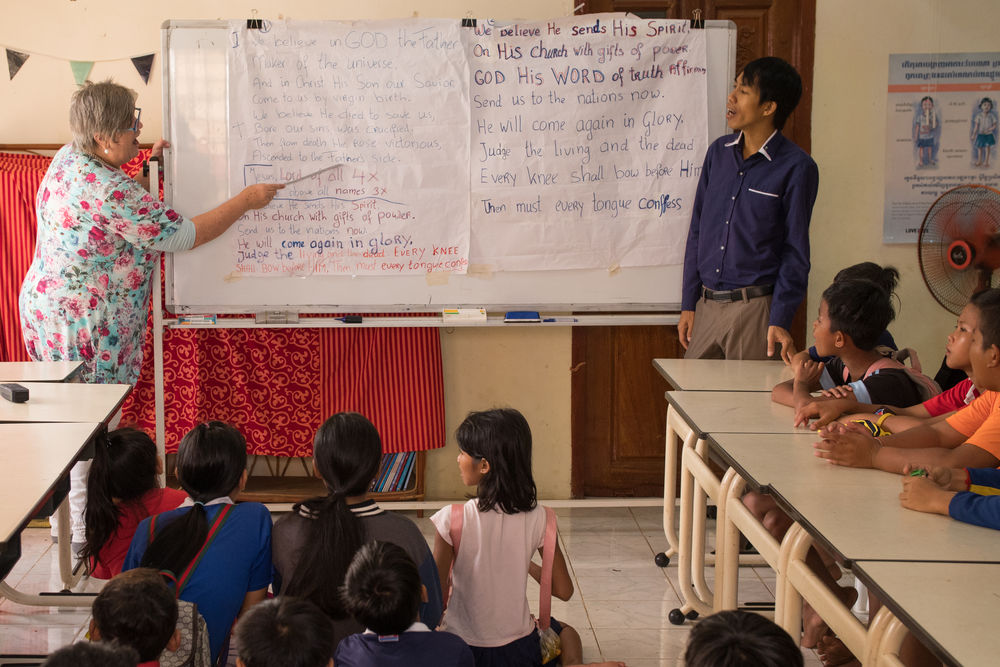 We believe in GOD the Father
Maker of the universe.
And in Christ His Son our Savior
Come to us by virgin birth.
We believe He died to save us,
Bore our sins was crucified,
Then from death He rose victorious,
Ascended to the Father's side.
Lord of all 4x
above all names 3x
He sends His Spirit
On His church with gifts of power.
Send us to the nations now.
He will come again in GLORY.
Judge the living and the dead EVERY KNEE
Shall Bow before HIM, Then must every tongue confess
We believe He sends His Spirit.
On His church with gifts of power.
GOD His WORD of truth Affirming
Send us to the nations now.
He will come again in GLORY.
Judge the living and the dead
Every knee shall bow before Him
Then must every tongue confess